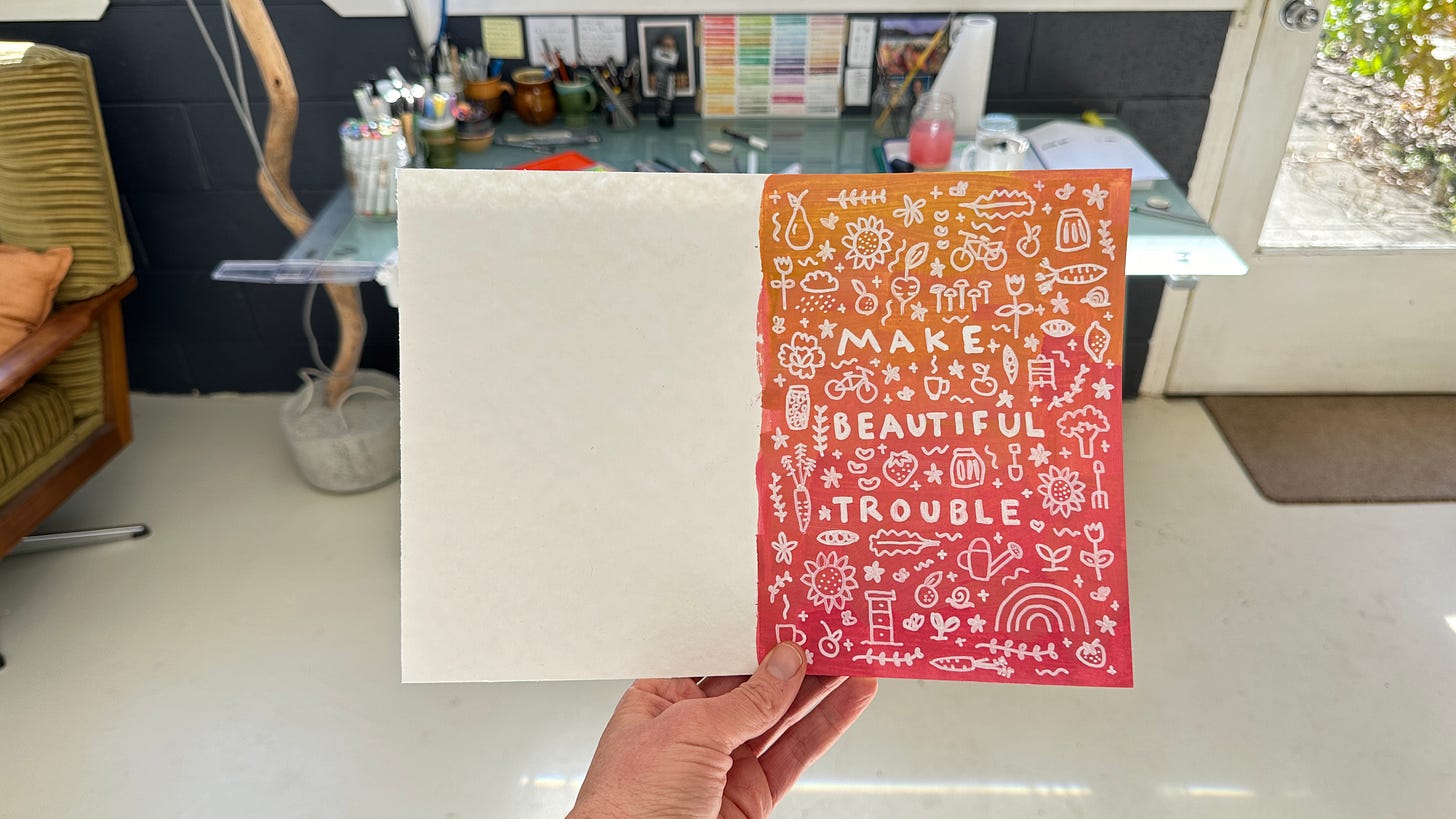 MAKE
BEAUTIFUL
TROUBLE